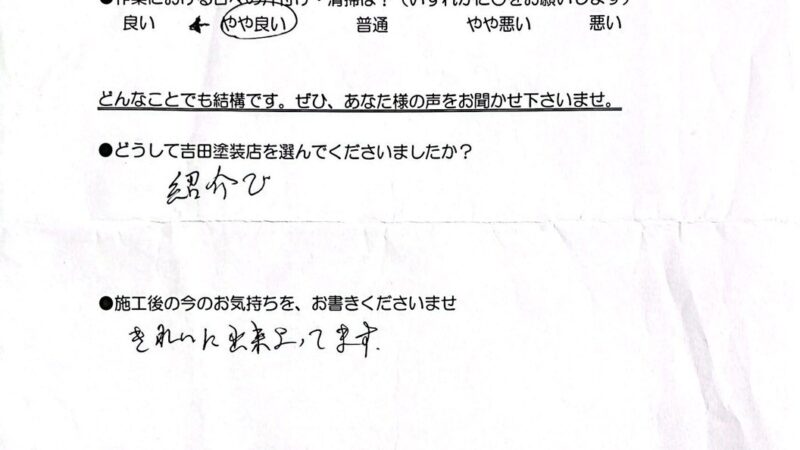 ●作業における日々の片付け・清掃は？（いずれかに○をお願いします）
良い ← やや良い 普通 やや悪い 悪い
どんなことでも結構です。ぜひ、あなた様の声をお聞かせ下さいませ。
●どうして吉田塗装店を選んでくださいましたか？
紹介で
●施工後の今のお気持ちを、お書きくださいませ
きれいに出来上ってます。